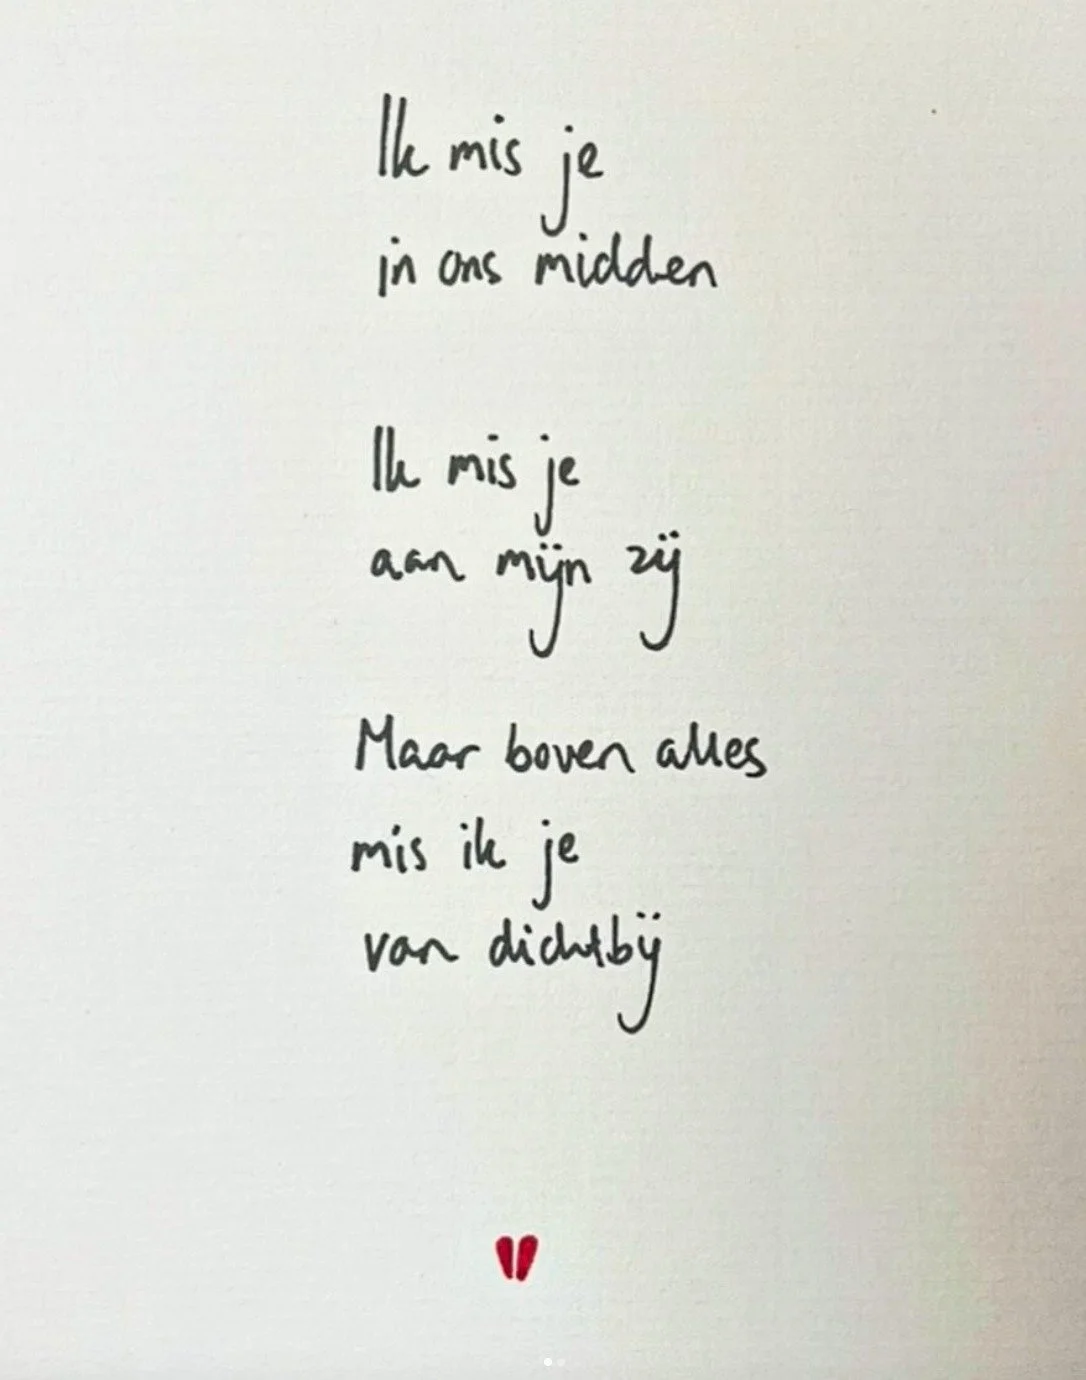 Ik mis je
in ons midden
Ik mis je
aan mijn zij
Maar boven alles
mis ik je
van dichtbij